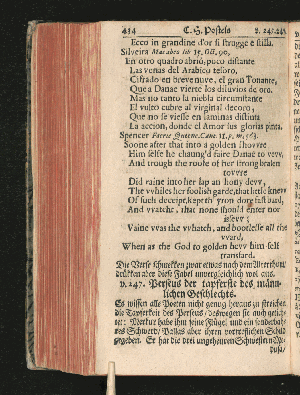 434 C. H. Postels v. 247.248.
Ecco in grandine d'or si strugge e stilla.
Silveira Macabeo lib 15,
En otro quadro abriò, poco distante
Las venas del Arabico tesoro,
Cifrado en breve nuve, el gran Tonante,
Que a Danae vierte los diluvios de oro.
Mas no tanto la niebla circumstante
El vulto cubre al virginal decoro;
Que no se viesse en laminas distinta
La accion, donde el Amor sus glorias pinta.
Spencer Fairie Queene. Cant.
Soone after that into a golden showre
Him selfe he chaung'd faire Danae to vevv,
And trough the roofe of her strong brasen
tovvre
Did raine into her lap an hony devv,
The vvhiles her foolish garde, that little knevv
Of such deceipt, kept th' yron dore fast bard,
And vvatcht, that none should enter nor
issevv;
Vaine vvas the vvhatch, and bootlesse all the
vvard,
When as the God to golden hevv him self
transfard.
Die Verse schmekken zwar etwas nach dem Alterthum;
drükken aber diese Fabel unvergleichlich wol aus.
v. 247. Perseus der tapferste des männ-
lichen Geschlechts.
Es wissen alle Poeten nicht genug heraus zu streichen
die Tapferkeit des Perseus; deswegen sie auch getich-
tet: Merkur habe ihm seine Flügel und ein sonderba-
res Schwert; Pallas aber ihren vortreflichen Schild
gegeben. Er hat die drei ungeheuren Schwestern Me-
dusa,